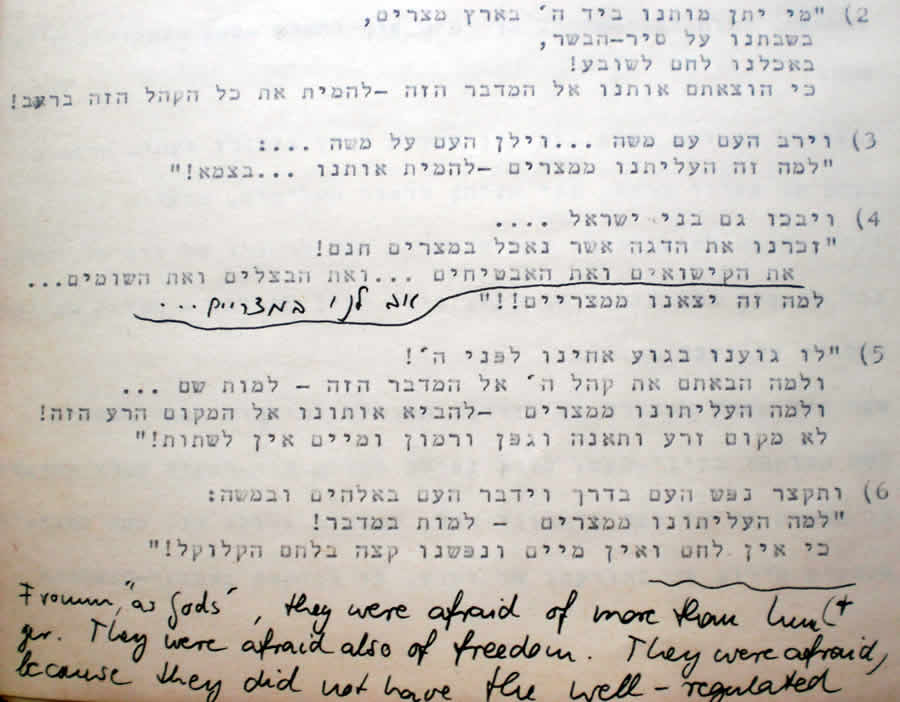 2) "מי יתן מותנו ביד ה' בארץ מצרים,
בשבתנו על סיר-הבשר,
באכלנו לחם לשובע!
כי הוצאתם אותנו אל המדבר הזה -להמית את כל הקהל הזה ברעב!
3) וירב העם עם משה ...וילן העם על משה ...:
"למה זה העליתנו ממצרים -להמית אותנו ...בצמא!"
4) ויבכו גם בני ישראל ....
"זכרנו את הדגה אשר נאכל במצרים חנם!
את הקישואים ואת האבטיחים ...ואת הבצלים ואת השומים...
למה זה יצאנו ממצריים!!" טוב לנו במצריים...
5) "לו גוענו בגוע אחינו לפני ה'!
ולמה הבאתם את קהל ה' אל המדבר הזה - למות שם ...
ולמה העליתונו ממצרים -להביא אותונו אל המקום הרע הזה!
לא מקום זרע ותאנה וגפן ורמון ומיים אין לשתות!"
6) ותקצר נפש העם בדרך וידבר העם באלהים ובמשה:
"למה העליתונו ממצרים - למות במדבר!
כי אין לחם ואין מיים ונפשנו קצה בלחם הקלוקל!"
Fromm, "as Gods", they were afraid of more than hun(+
ger. They were afraid also of freedom. They were afraid,
because they did not have the well-regulated